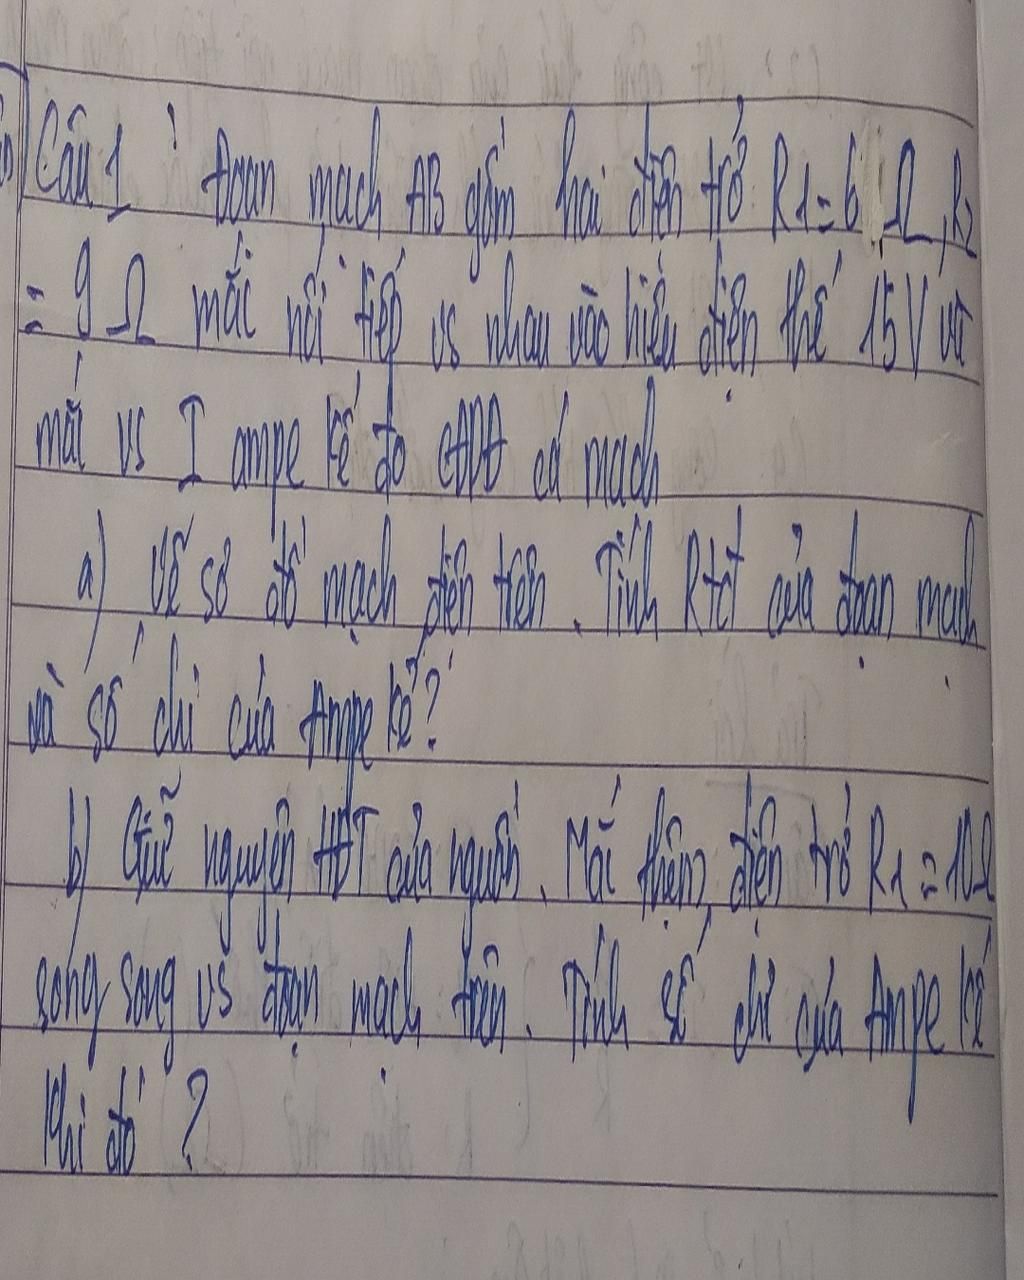 Câu 1 : Đoạn mạch AB gồm hai điện trở R1 = 6 Ω, R2
= 9 Ω mắc nối tiếp vs nhau vào hiệu điện thế 15V và
mắc vs I ampe kế đo CĐDĐ cả mạch
a) Vẽ sơ đồ mạch điện trên. Tính Rtđ của đoạn mạch
và số chỉ của Ampe kế?
b) Giữ nguyên HĐT của nguồn. Mắc thêm điện trở R1 = 10Ω
song song vs đoạn mạch trên. Tính số chỉ của Ampe kế
khi đó ?